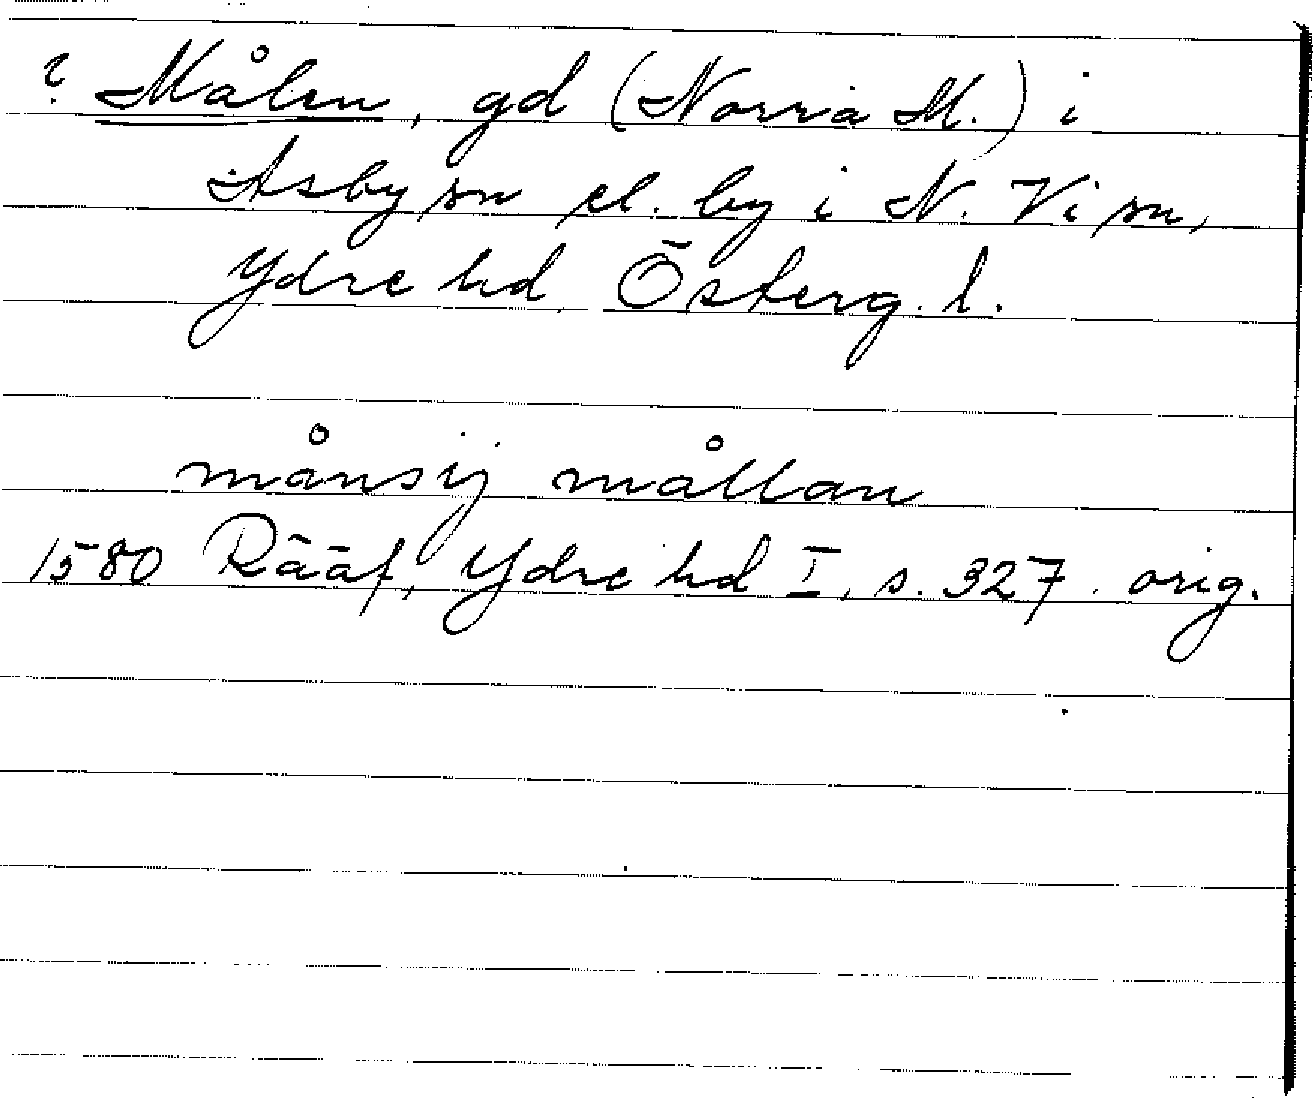 ? Målen, gd (Norra M.) i
Asby sn el. by i N. Vi sn,
Ydre hd, Österg. l.
månsij mållan
1580 Rääf, Ydre hd I, s. 327. orig.